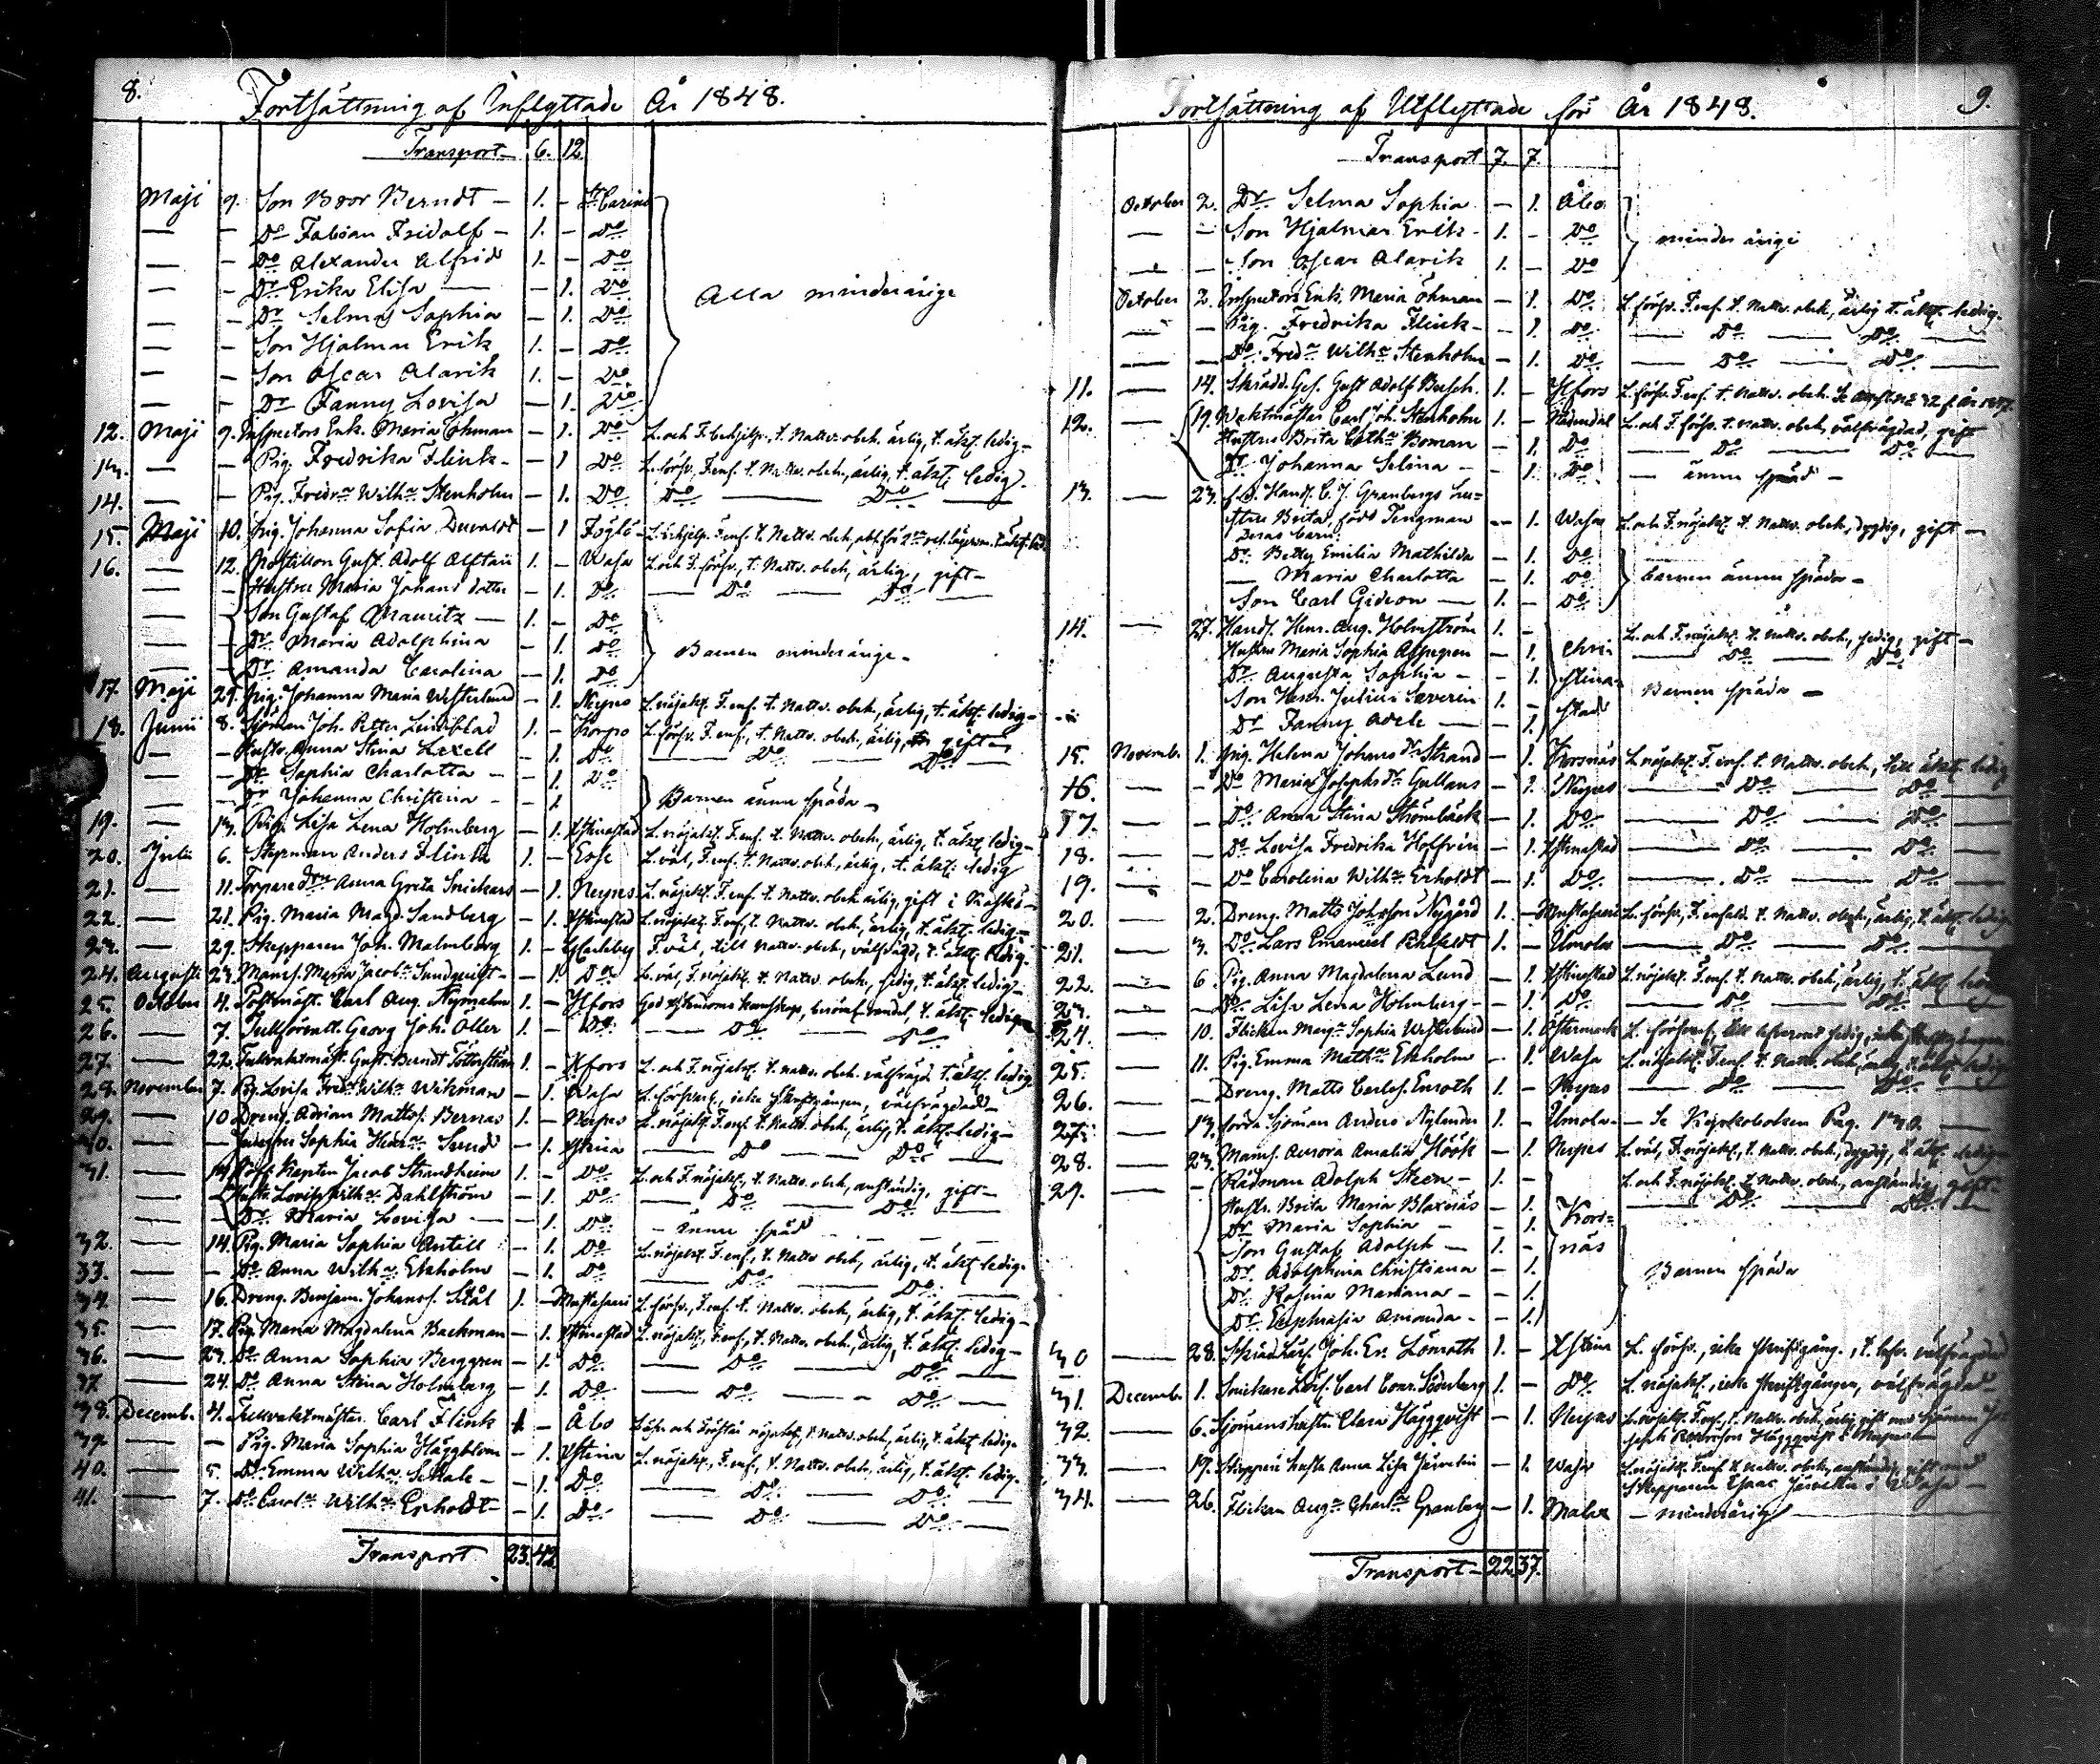 8.
Fortsättning af Inflyttade År 1848.
Transport 6. 12.
Maji 9. Son Boor Berndt — 1. - St Carins
— - Do Fabian Fridolf - 1. - Do
— - Do Alexander Alfrid 1. - Do
— - Dr Erika Elisa — - 1. Do
Alla minderårige
— - Dr Selma Sophia - 1. Do
— - Son Hjalmar Erik 1. - Do
— - Son Oscar Alarik 1. - Do
— - Dr Fanny Lovisa - 1. Do
12. Maji 9. Inspectors Enk. Maria Öhman - 1. Do L. och F. behjelp., t. Nattv. obeh. ärlig, t. äkt. ledig -
13. — - Pig. Fredrika Flink - - 1 Do L. försv. F. enf. t. Nattv. obeh., ärlig, t. äkt. ledig.
14. — - Pig. Fredr:a Wilh:a Stenholm - 1. Do Do — Do —
15. Maji 10. Pig. Johanna Sofia - 1 Föglö
16. — 12. Postillon Gust. Adolf Alftan 1. - Wasa L. och F. försv., t. Nattv. obeh., ärlig, gift -
— - Hustru Maria Johans dotter - 1. Do — Do — Do —
— - Son Gustaf Mauritz — 1. - Do
— - Dr Maria Adolphina - 1. Do Barnen minderårige -
— - Dr Amanda Carolina - 1. Do
17. Maji 29. Pig. Johanna Maria Westerlund - 1. Nerpes L. nöjakt. F. enf. t. Nattv. obeh., ärlig, t. äkt. ledig -
18. Junii 8. Sjöman Joh. Petter Lindblad 1. - Korpo L. försv. F. enf., t. Nattv. obeh., ärlig, gift -
— - Hustr. Anna Stina Lexell - 1. Do — Do — Do —
— - Dr Sophia Charlotta - - 1. Do
— - Dr Johanna Christina - - 1. Barnen ännu späda -
19. — 13. Pig. Lisa Lena Holmberg - 1. Xstinestad L. nöjakt. F. enf. t. Nattv. obeh., ärlig, t. äkt. ledig -
20. Julii 6. Styrman Anders Flink 1. - Esse L. väl, F. enf. t. Nattv. obeh., ärlig, t. äkt. ledig
21. — 11. Torpare Anna Greta Snickars - 1. Nerpes L. nöjakt. F. enf. t. Nattv. obeh. ärlig, gift i
22. — 21. Pig. Maria Magd. Sandberg - 1. Xstinestad L. nöjakt. F. enf. t. Nattv. obeh., ärlig, t. äkt. ledig -
23. — 29. Skepparen Joh. Malmberg 1. - F. väl, till Nattv. obeh., välfrägd, t. äkt. ledig.
24. Augusti 23. Mams. Maria Jacob:a Sundqvist - - 1. Do L. väl, F. nöjakt. t. Nattv. obeh., sedig, t. äkt. ledig -
25. October 4. Postmäst. Carl Aug. Nymalm 1. - Hfors God Xstendoms kunskap, berömd vandel, t. äkt. ledig
26. — 7. Tullförvalt. Georg Joh. Öller 1. - Do — Do — Do
27. — 22. Tullvaktmäst. Gust. Berndt 1. - Hfors L. och F. nöjakt. t. nattv. obeh. välfrägd t. äkt. ledig
28. November 7. Pig. Lovisa Wilh. Wikman - 1. Wasa L. försvarl., icke skriftgången, välfrägdad -
29. — 10 Dreng. Adrian Mattss. Bernas 1. - Nerpes L. nöjakt. F. enf. t. Nattv. obeh., ärlig, t. äkt. ledig -
30. — - Sophia Sund - 1. Xstina — Do — Do —
31. — 14. Kapten Jacob Strandheim 1. - Do L. och F. nöjakt., t. Nattv. obeh., anständig, gift -
— - Hustr. Lovisa Wilh:a Dahlström - 1. Do — Do — Do —
— - Dr Maria Lovisa — - 1. Do - ännu späd -
32. — 14. Pig. Maria Sophia Antill - 1. Do L. nöjakt. F. enf., t. Nattv. obeh., ärlig, t. äkt. ledig.
33. — - Do Anna Wilh:a Ekholm - 1. Do — Do — Do —
34. — 16. Dreng. Benjam. Johanss. Stål 1. - Mustasaari L. försv., F. enf. t. Nattv. obeh., ärlig, t. äkt. ledig -
35. — 17. Pig. Maria Magdalena Backman - 1. Xstinestad L. nöjakt., F. enf., t. Nattv. obeh., ärlig, t. äkt. ledig -
36. — 23. Do Anna Sophia Berggren - 1. Do — Do — Do —
37. — 24. Do Anna Stina Holmberg - 1. Do — Do — Do —
38. Decemb. 4. Tullvaktmästar. Carl Flink 1. - Åbo nöjakt., t. Nattv. obeh., ärlig, t. äkt. ledig.
39. — - Pig. Maria Sophia Häggblom - 1. Xstina L. nöjakt., F. enf., t. Nattv. obeh., ärlig, t. äkt. ledig.
40. — 5. Do Emma Wilh:a - 1. Do — Do — Do —
41. — 7. Do Carol:a Wilh:a Erholdt - 1. Do — Do — Do —
Transport 23. 42.
9.
Fortsättning af Utflyttade för År 1848.
Transport 7. 7.
October 2. Dr Selma Sophia - 1. Åbo
— - Son Hjalmar Erik - 1. - Do minderårige
— - Son Oscar Alarik 1. - Do
October 2. Inspectors Enk. Maria Öhman - 1. Do L. försv. F. enf. t. Nattv. obeh., ärlig t. äkt. ledig.
— - Pig. Fredrika Flink - - 1. Do — Do — Do —
— - Do Fred:a Wilh:a Stenholm - 1. Do — Do — Do —
11. — 14. Skrädd. Ges. Gust. Adolf 1. - Hfors L. försv. F. enf. t. Nattv. obeh.
12. — 19. Waktmästar. Carl Joh. Stenholm 1. - Nådendal L. och F. försv. t. nattv. obeh., välfrägdad, gift
Hustru Brita Cath:a Boman - 1. Do — Do — Do —
Dr Johanna Selina - - 1. Do — ännu späd -
13. — 23. f.d. Handl. C. J. Granbergs hu=
stru Brita, född Tengman - 1. Wasa L. och F. nöjakt. t. Nattv. obeh., dygdig, gift -
Deras barn:
Dr Betty Emilia Mathilda - 1. Do
— Maria Charlotta - 1. Do barnen ännu späda -
Son Carl Gideon — 1. - Do
14. — 27. Handl. Henr. Aug. Holmström 1. - L. och F. nöjakt. t. nattv. obeh., sedig, gift -
Hustru Maria Sophia Alfegren - 1. Chri= — Do — Do
Dr Augusta Sophia - - 1. stina=
Son Henr. Julius Severin 1. - stad Barnen späda -
Dr Fanny Adele — - 1.
15. Novemb. 1. Pig. Helena Johans dr Strand - 1. Korsnäs L. nöjakt. F. enf. t. Nattv. obeh., till äkt. ledig
16. — - Do Maria Josephs dr Gullans - 1. Nerpes — Do — Do —
17. — - Do Anna Stina Strömbäck - 1. Do — Do — Do —
18. — - Do Lovisa Fredrika Hoffrén - 1. Xstinestad — Do — Do —
19. — - Do Carolina Wilh:a Erholdt - 1. Do — Do — Do —
20. — 2. Dreng. Matts Johsson Nygård 1. - Mustasaari L. försv., F. enfald. t. Nattv. obeh., ärlig, t. äkt. ledig
21. — 3. Do Lars Emanuel 1. - Umola — Do — Do —
22. — 6 Pig. Anna Magdalena Lund - 1. Xstinestad L. nöjakt. F. enf. t. Nattv. obeh., ärlig, t. äkt.
23. — - Do Lisa Lena Holmberg - - 1. Do — Do — Do —
24. — 10. Flickan Marg:a Sophia Westerlund - 1. Östermark
25. — 11. Pig. Emma Math:a Ekholm - 1. Wasa L. nöjakt. F. enf. t. Nattv. obeh., ärlig, t. äkt. ledig
26. — - Dreng. Matts Carlss. Enroth 1. - Nerpes — Do — Do
27. — 13. Sjöman Anders Nylund 1. - Umola - Se Kyrkoboken Pag. 130 —
28. — 23. Mams. Aurora Amalia Höök - 1. Nerpes L. väl, F. nöjakt., t. Nattv. obeh., dygdig, t. äkt. ledig
29. — - Rådman Adolph Steen - 1. - L. och F. nöjakt. t. Nattv. obeh., anständig, gift.
Hustr. Brita Maria Blaxnäs - 1. — Do — Do —
Dr Maria Sophia - - 1. Kors=
Son Gustaf Adolph — 1. - näs
Dr Adolphina Christiana - 1. Barnen späda
Dr Rosina Mariana - - 1.
Dr Euphrasia Amanda - - 1.
30 — 28. Joh. Er. Lönroth 1. - Xstina L. försv., icke skriftgång., välfrägdad
31. Decemb. 1. Snickare Lärl. Carl Conr. Söderberg 1. - Do L. nöjakt., icke skriftgången, välfrägdad
32. — 6. Sjömanshustr. Clara Häggqvist - 1. Nerpes L. nöjakt. F. enf., t. Nattv. obeh. ärlig, gift med sjöman
Häggqvist i Nerpes -
33. — 19. Skeppare hustr. Anna Lisa Järvelin - 1. Wasa L. nöjakt. F. enf. t. Nattv. obeh., anständig, gift med
Skepparen Isaac Järvelin i Wasa -
34. — 26. Flickan Aug:a Charl:a Granberg - 1. Malax - minderårig -
Transport - 22 37.